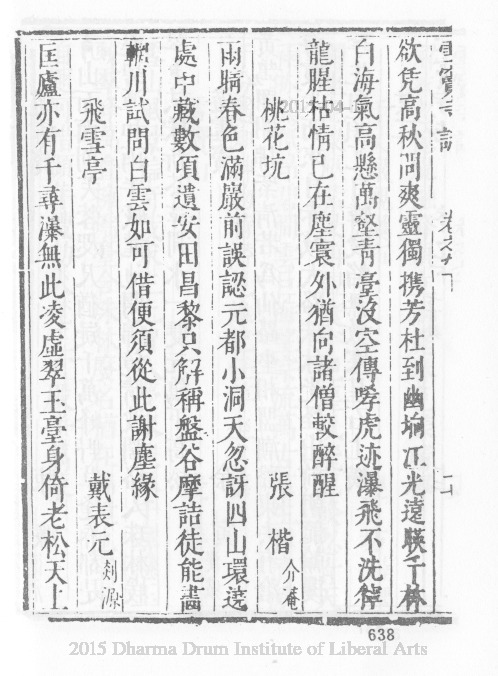 欲凭高秋問爽靈獨携芳杜到幽坰江光遠暎千林
白海氣高懸萬壑青臺沒空傳哮虎迹瀑飛不洗蟄
龍腥枯情已在塵寰外猶向諸僧較醉醒
桃花坑 張楷介菴
雨晴春色滿巖前誤認元都小洞天忽訝四山環遶
處中藏數項遺安田昌黎只解稱盤谷摩詰徒能畫
輞川試問白雲如可借便須從此謝塵緣
飛雪亭 戴表元剡源
匡廬亦有千尋瀑無此凌虛翠玉臺身倚老松天上
638
2015 Dharma Drum Institute of Liberal Arts